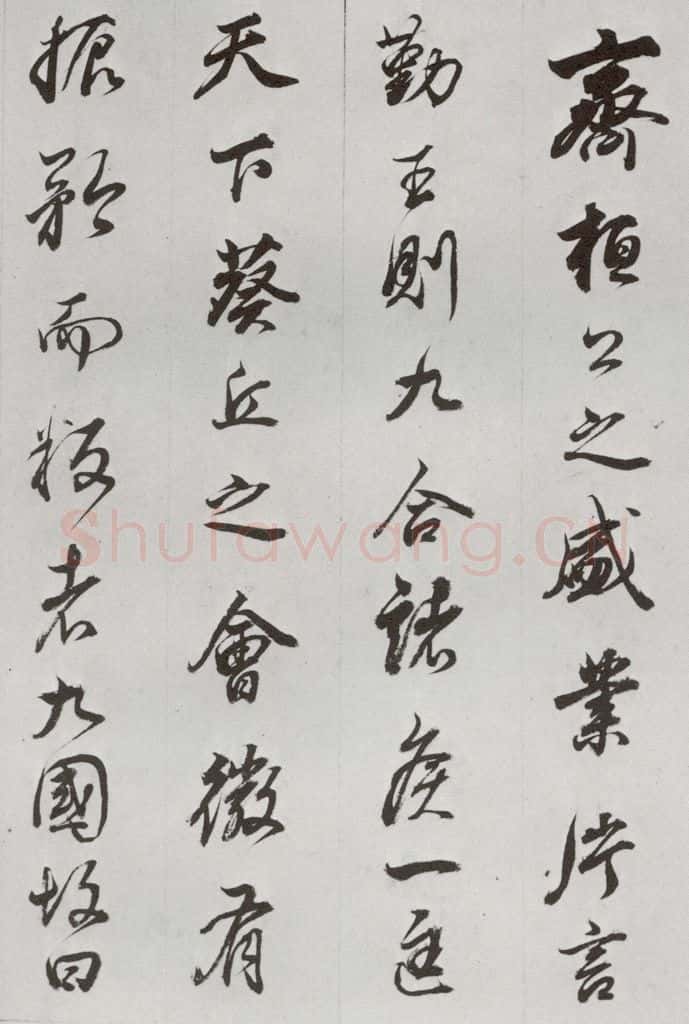 齊桓公之盛業片言
勤王則九合諸侯一匡
天下葵丘之會微有
振矜而叛者九國故曰
Shufawang.CN